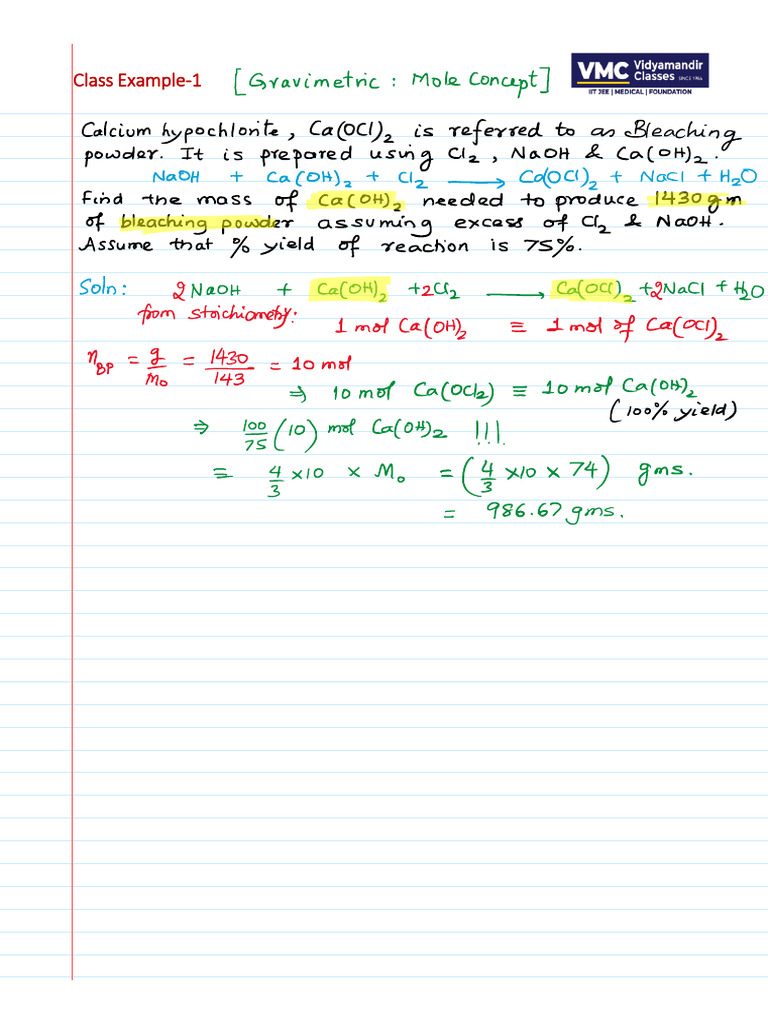 Class Example-1 [Gravimetric : Mole Concept]
VMC Vidyamandir Classes SINCE 1986
IIT JEE | MEDICAL | FOUNDATION
Calcium hypochlorite, Ca(OCl)₂ is referred to as Bleaching
powder. It is prepared using Cl₂, NaOH & Ca(OH)₂.
NaOH + Ca(OH)₂ + Cl₂ ⟶ Ca(OCl)₂ + NaCl + H₂O
Find the mass of Ca(OH)₂ needed to produce 1430 gm
of bleaching powder assuming excess of Cl₂ & NaOH.
Assume that % yield of reaction is 75%.
Soln: 2NaOH + Ca(OH)₂ + 2Cl₂ ⟶ Ca(OCl)₂ + 2NaCl + H₂O
from stoichiometry: 1 mol Ca(OH)₂ ≡ 1 mol of Ca(OCl)₂
n_BP = g/M₀ = 1430/143 = 10 mol
⇒ 10 mol Ca(OCl₂) ≡ 10 mol Ca(OH)₂
(100% yield)
⇒ 100/75 (10) mol Ca(OH)₂ !!!
≡ 4/3 × 10 × M₀ = (4/3 × 10 × 74) gms.
= 986.67 gms.